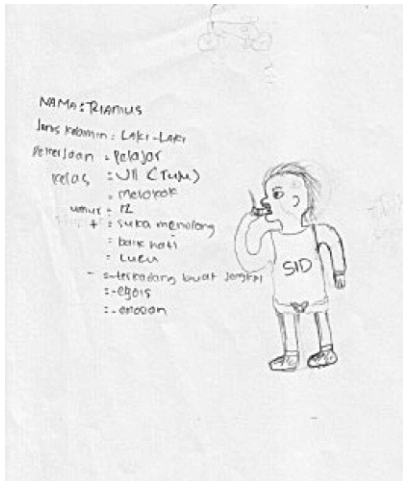 NAMA : TRIAMUS
Jenis kelamin : LAKI-LAKI
Pekerjaan : Pelajar
Kelas : VII (TUJU)
: merokok
umur : 12
+ : suka menolong
: baik hati
: Lucu
- :-terkadang buat jengkel
:-egois
:-emosian
SID